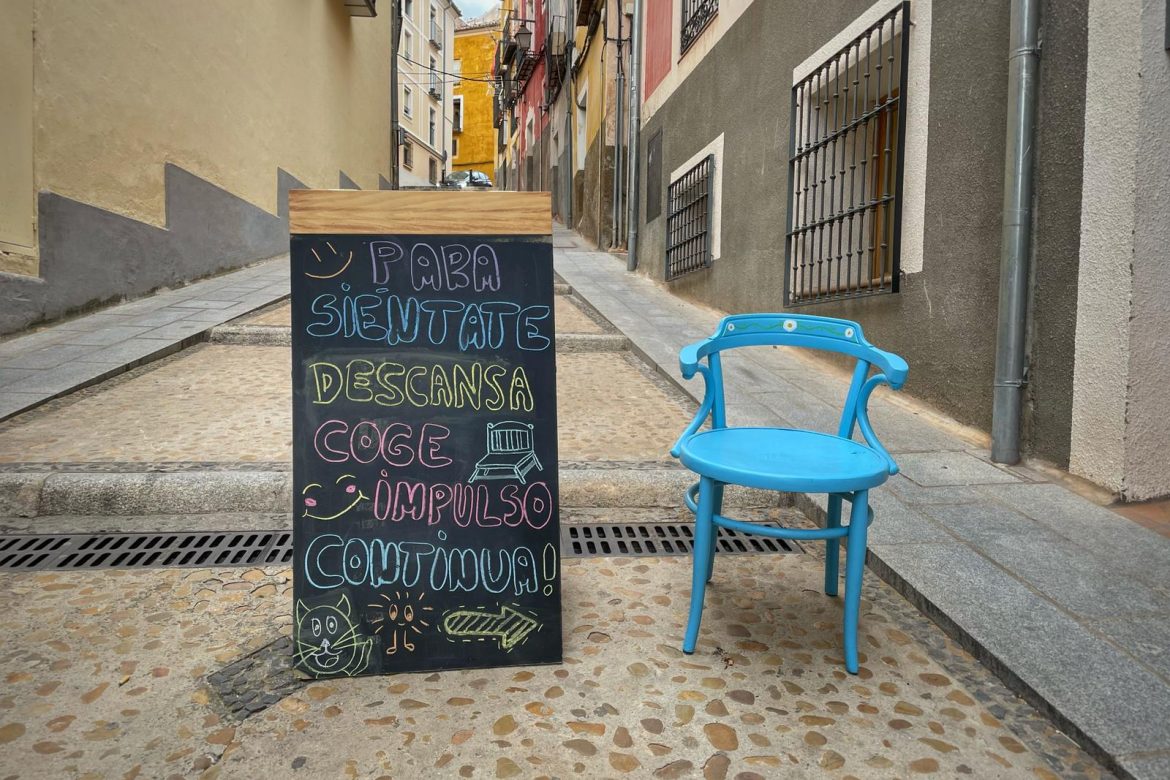 PARA
SIÉNTATE
DESCANSA
COGE
IMPULSO
CONTINUA!